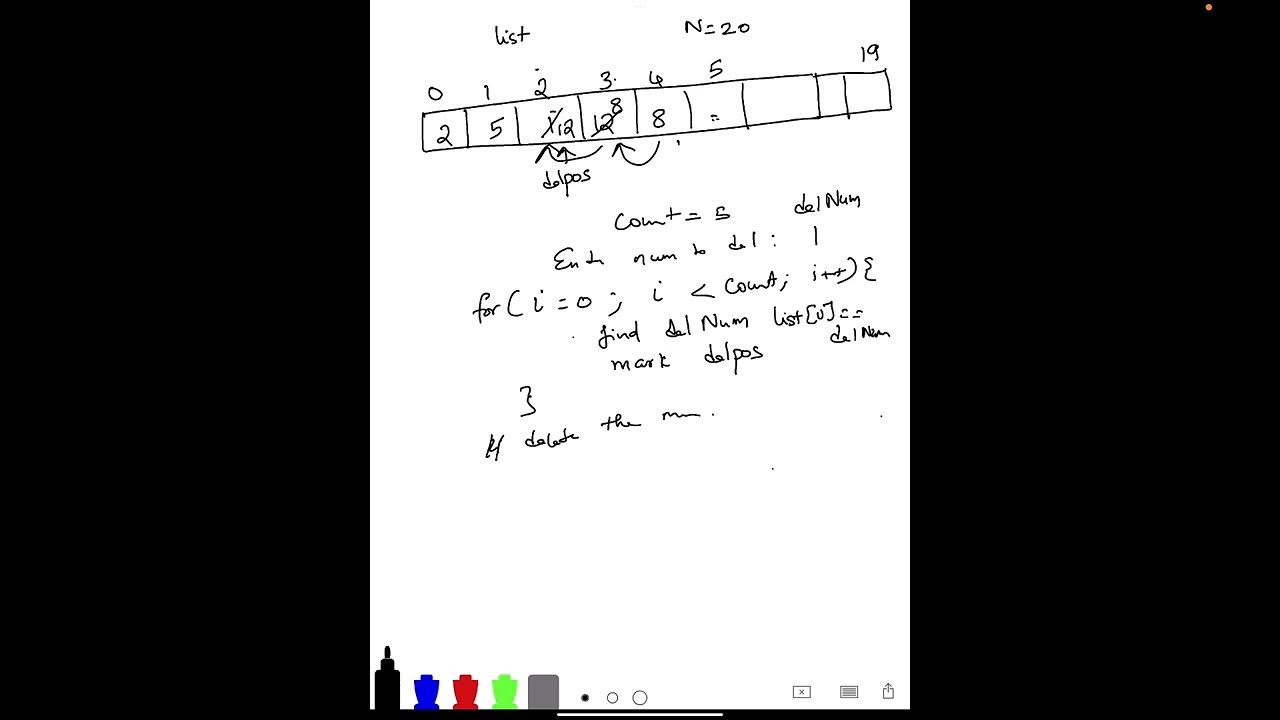 list N=20
0 1 2 3 4 5 19
2 5 1 12 12 8 8
delpos
Count = 5 delNum
num to del : 1
for ( i = 0 ; i < Count; i++) {
find delNum list[i]==
delNum
mark delpos
}
// delete the